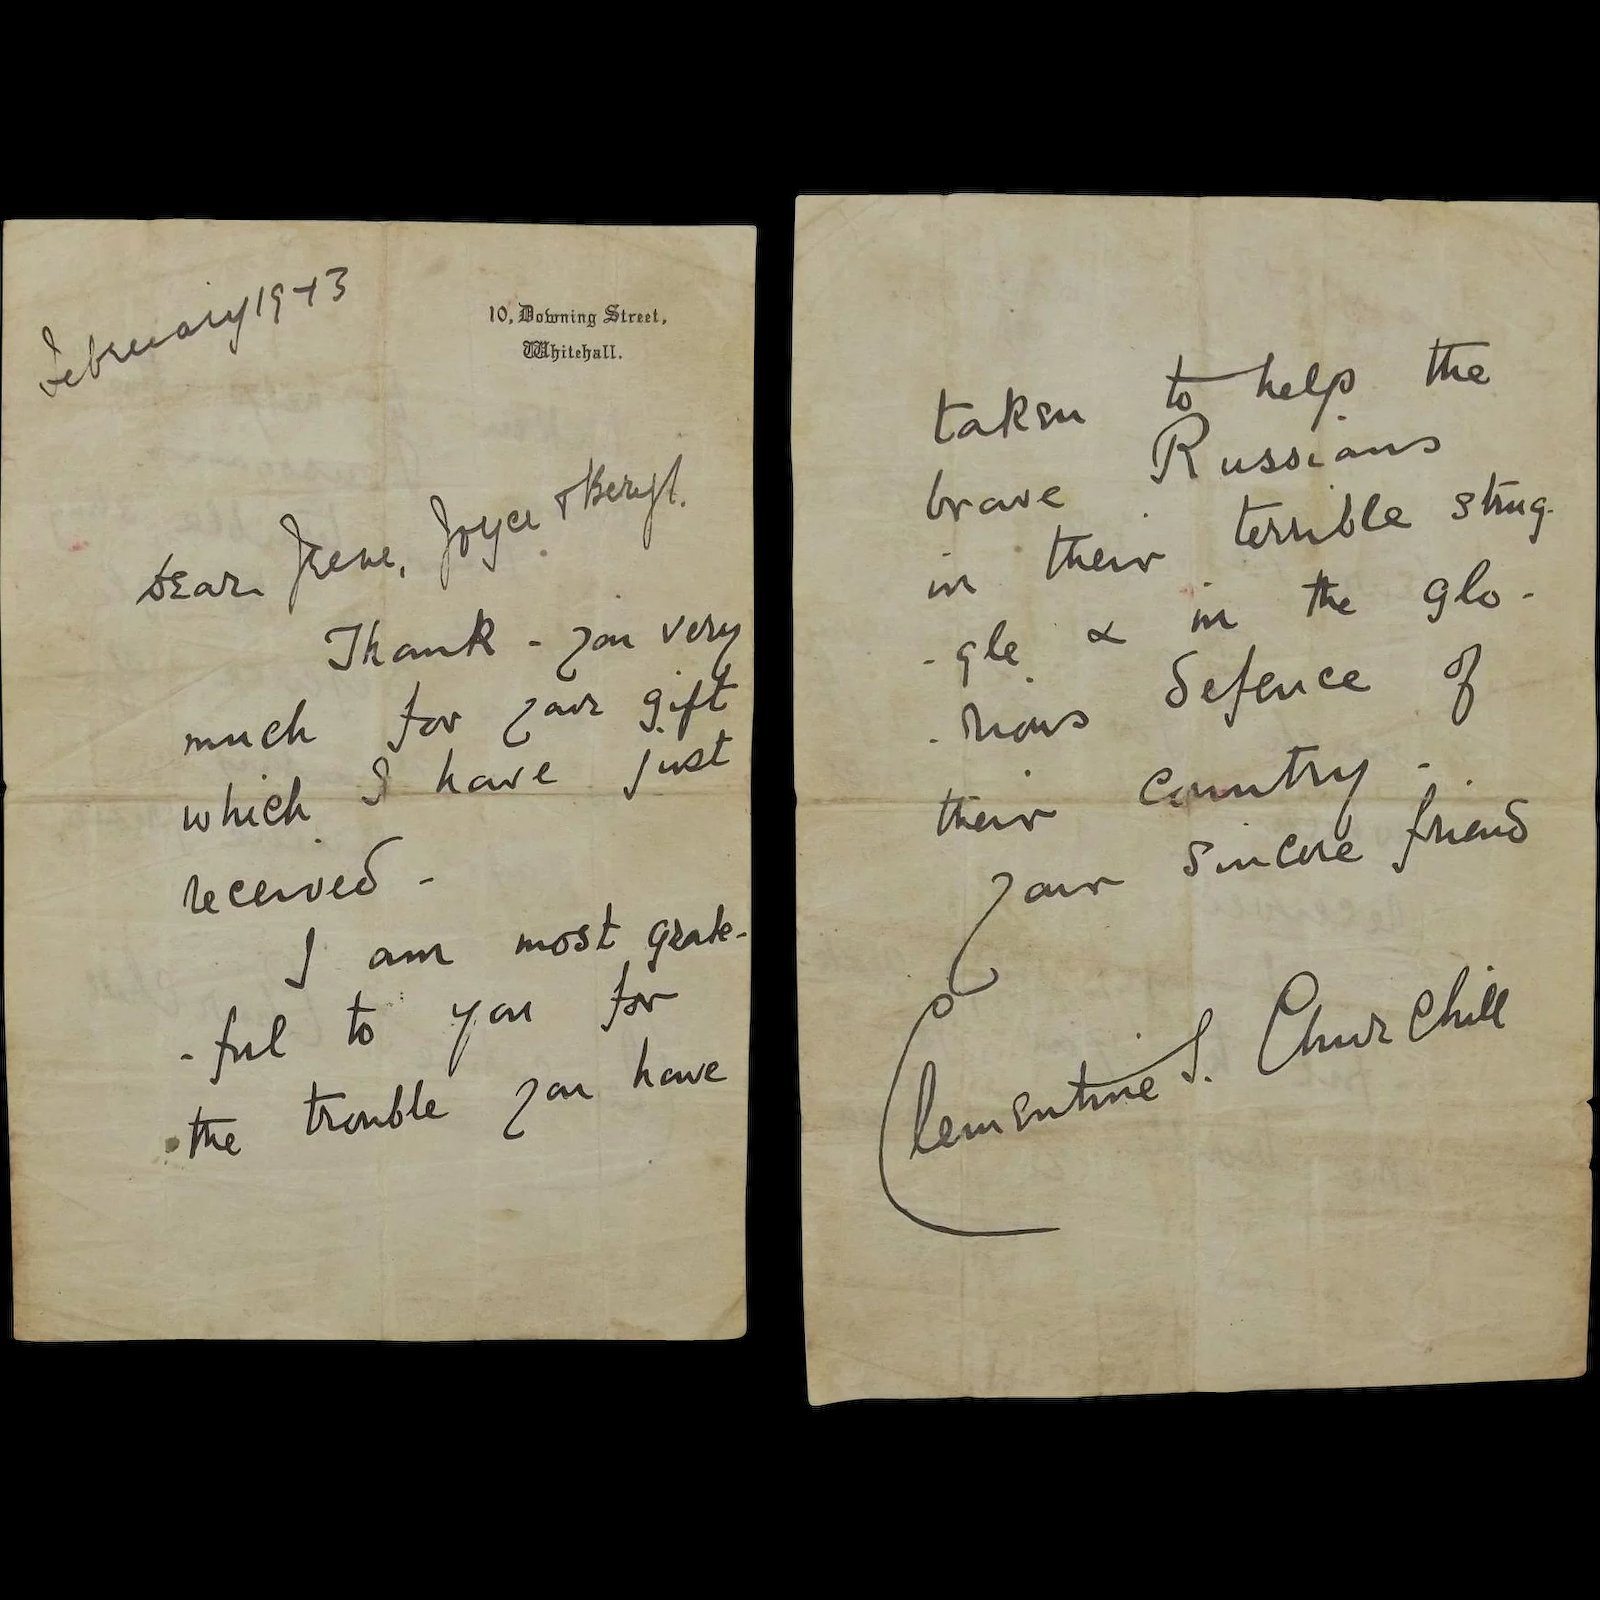 February 1943
10, Downing Street,
Whitehall.
Dear Irene, Joyce & Beryl.
Thank - you very
much for your gift
which I have just
received -
I am most grate-
-ful to you for
the trouble you have
taken to help the
brave Russians
in their terrible strug-
-gle & in the glo-
-rious defence of
their country -
your sincere friend
Clementine S. Churchill